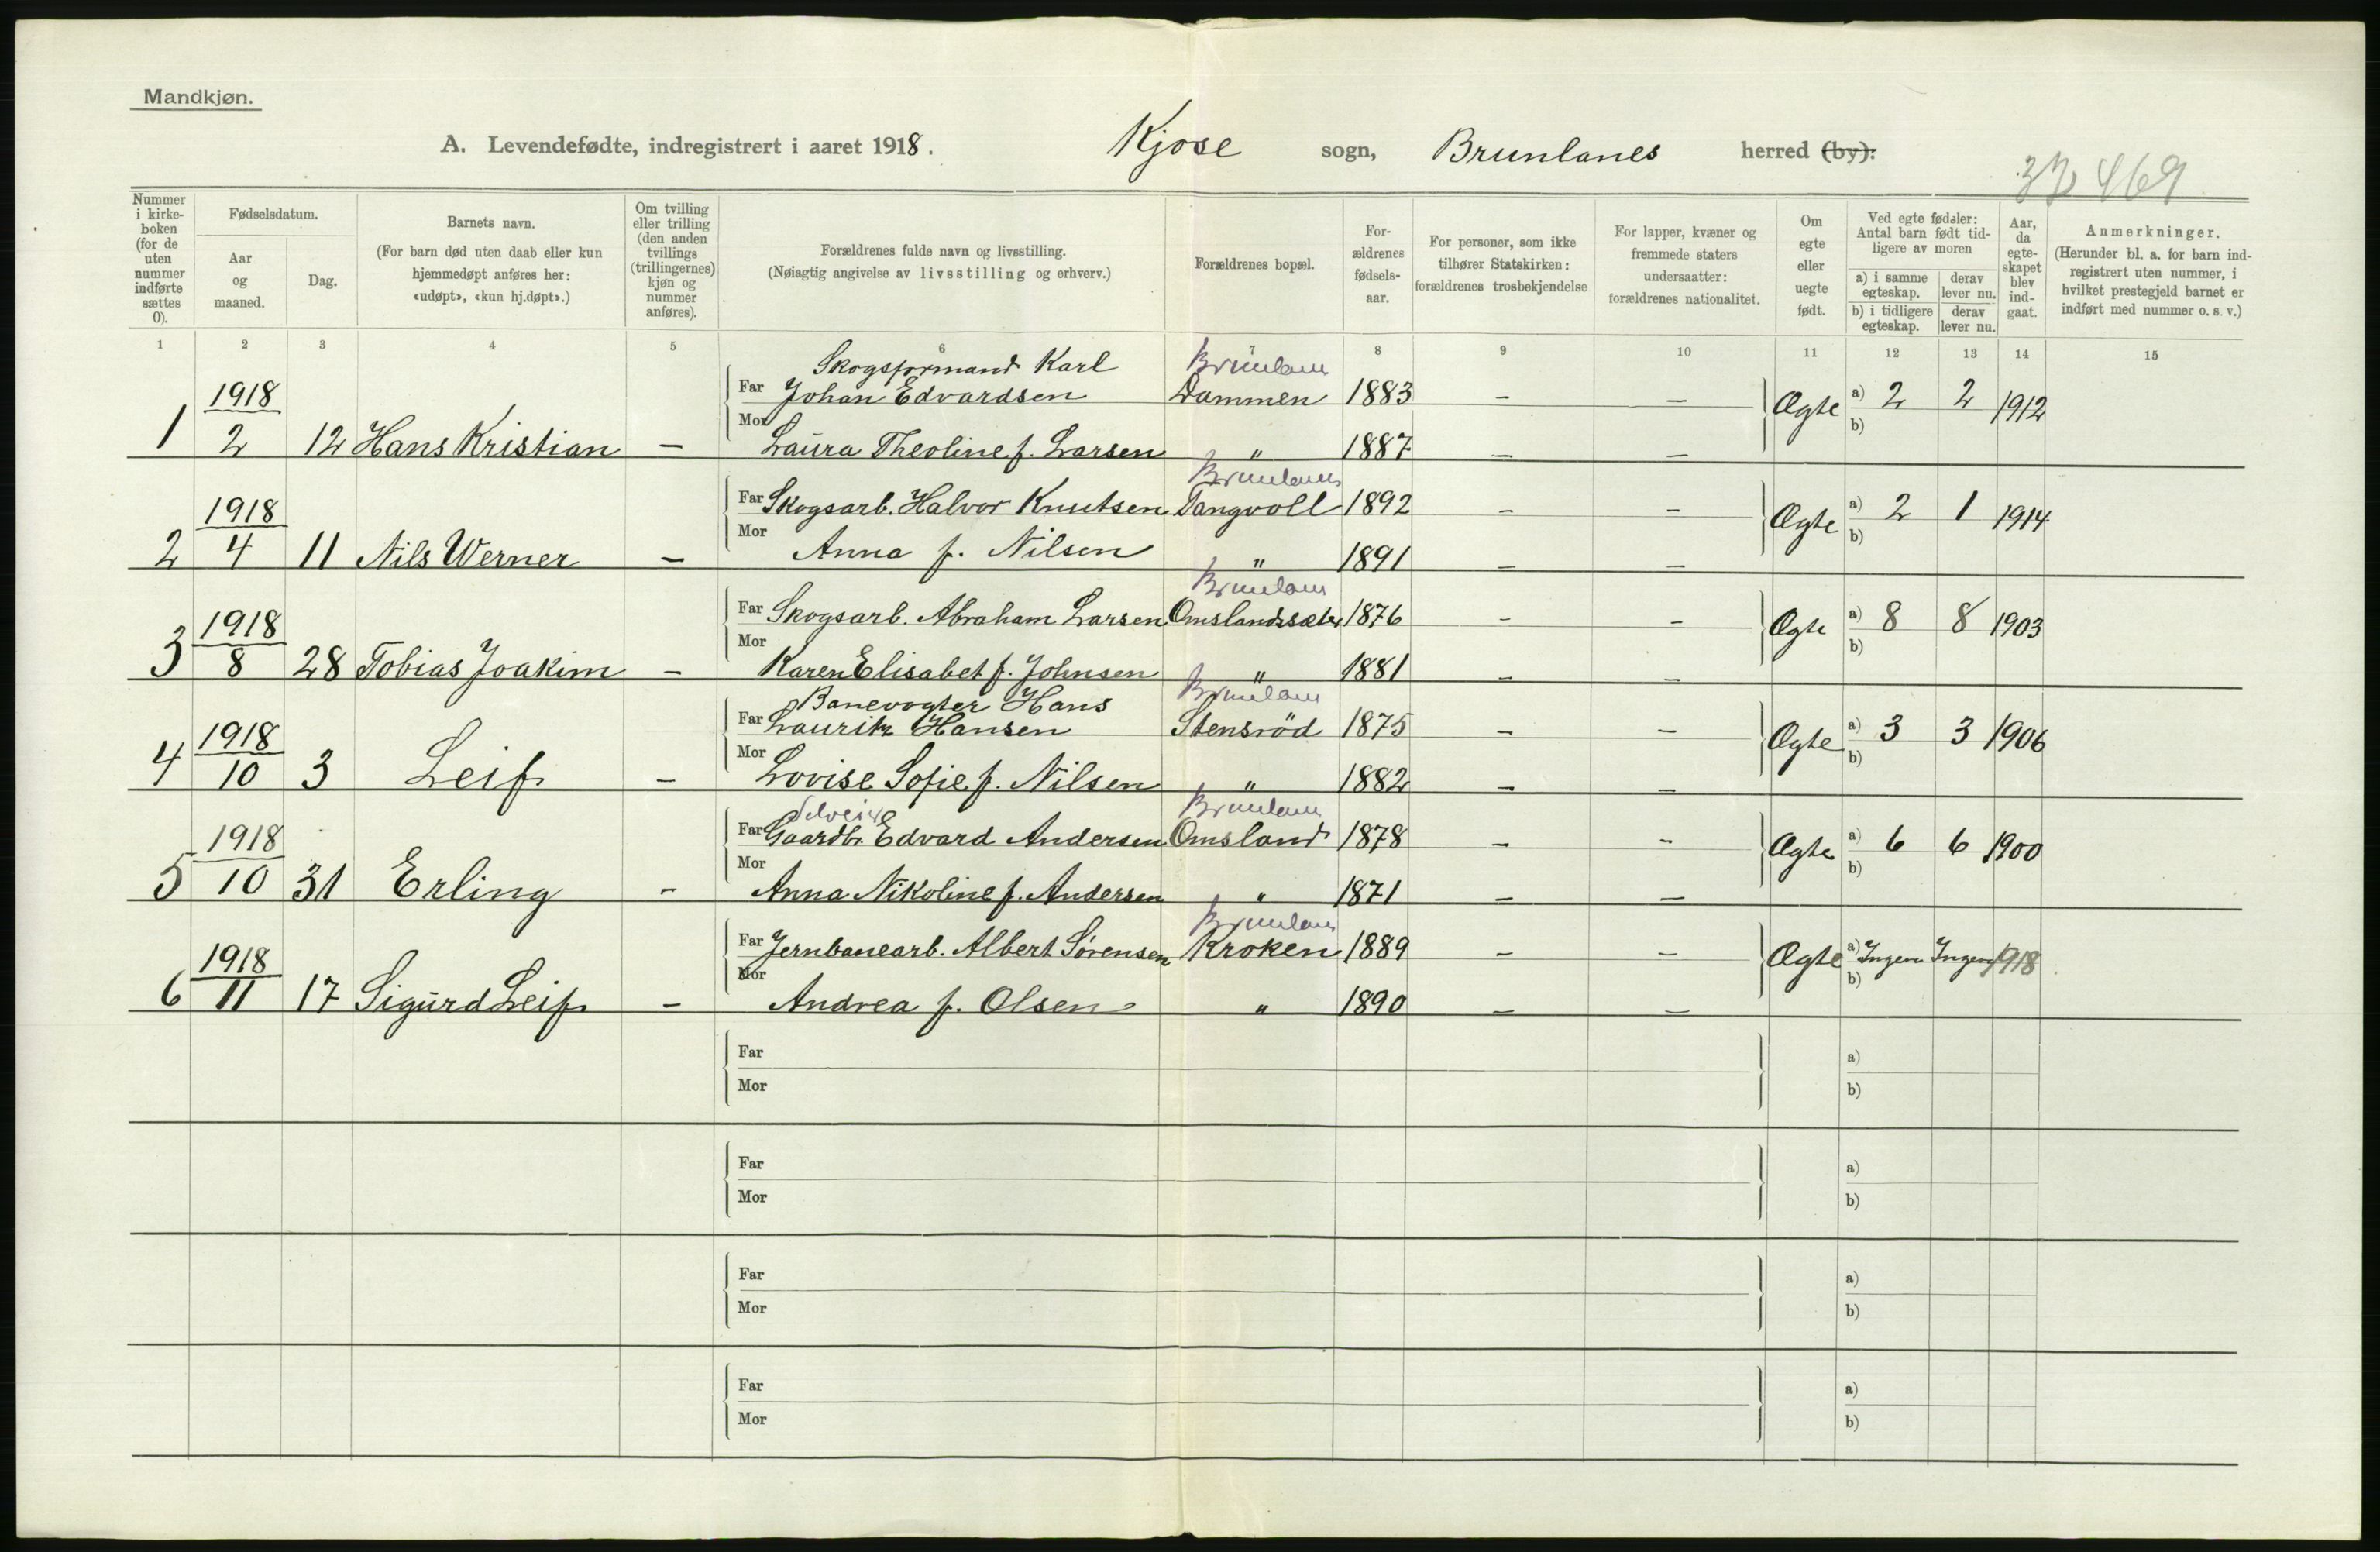 Mandkjøn.
A. Levendefødte, indregistrert i aaret 1918. Kjose sogn, Brunlanes herred (by):
469
Nummer i kirkeboken (for de uten nummer indførte sættes 0).
Fødselsdatum.
Aar og maaned.
Dag.
Barnets navn.
(For barn død uten daab eller kun hjemmedøpt anføres her: «udøpt», «kun hj.døpt».)
Om tvilling eller trilling (den anden tvillings (trillingernes) kjøn og nummer anføres).
Forældrenes fulde navn og livsstilling.
(Nøiagtig angivelse av livsstilling og erhverv.)
Forældrenes bopæl.
Forældrenes fødselsaar.
For personer, som ikke tilhører Statskirken: forældrenes trosbekjendelse
For lapper, kvæner og fremmede staters undersaatter: forældrenes nationalitet.
Om egte eller uegte født.
Ved egte fødsler: Antal barn født tidligere av moren
a) i samme egteskap. derav lever nu.
b) i tidligere egteskap. derav lever nu.
Aar, da egteskapet blev indgaat.
Anmerkninger.
(Herunder bl. a. for barn indregistrert uten nummer, i hvilket prestegjeld barnet er indført med nummer o. s. v.)
1 2 3 4 5 6 7 8 9 10 11 12 13 14 15
Skogsformand Karl Brunlanes
1918 Far Johan Edvardsen Dammen 1883 – – Ægte a) 2 2 1912
1 2 12 Hans Kristian – Mor Laura Theoline f. Larsen " 1887 – – b)
Brunlanes
1918 Far Skogsarb. Halvor Knutsen Tangvoll 1892 – – Ægte a) 2 1 1914
2 4 11 Nils Werner – Mor Anna f. Nilsen " 1891 – – b)
Brunlanes
1918 Far Skogsarb. Abraham Larsen Omslandssæter 1876 – – Ægte a) 8 8 1903
3 8 28 Tobias Joakim – Mor Karen Elisabet f. Johnsen " 1881 – – b)
Banevogter Hans Brunlanes
1918 Far Lauritz Hansen Stensröd 1875 – – Ægte a) 3 3 1906
4 10 3 Leif – Mor Lovise Sofie f. Nilsen " 1882 – – b)
Selveier Brunlanes
1918 Far Gaardbr. Edvard Andersen Omsland 1878 – – Ægte a) 6 6 1900
5 10 31 Erling – Mor Anna Nikoline f. Andersen " 1871 – – b)
Brunlanes
1918 Far Jernbanearb. Albert Sörensen Kroken 1889 – – Ægte a) Ingen Ingen 1918
6 11 17 Sigurd Leif – Mor Andrea f. Olsen " 1890 – – b)
Far a)
Mor b)
Far a)
Mor b)
Far a)
Mor b)
Far a)
Mor b)